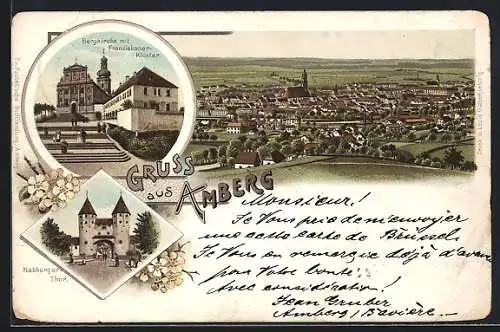 Bergkirche mit
Franziskaner-
Kloster.
GRUSS
aus
AMBERG
Nabburger
Thor.
Monsieur!
Je Vous prie de m'envoyer
une cette carte de Bruxsel.
Je Vous en remercie déjà d'avan
pour Votre bonté!
Avec considération!
Jean Gruber
Amberg, Bavière.